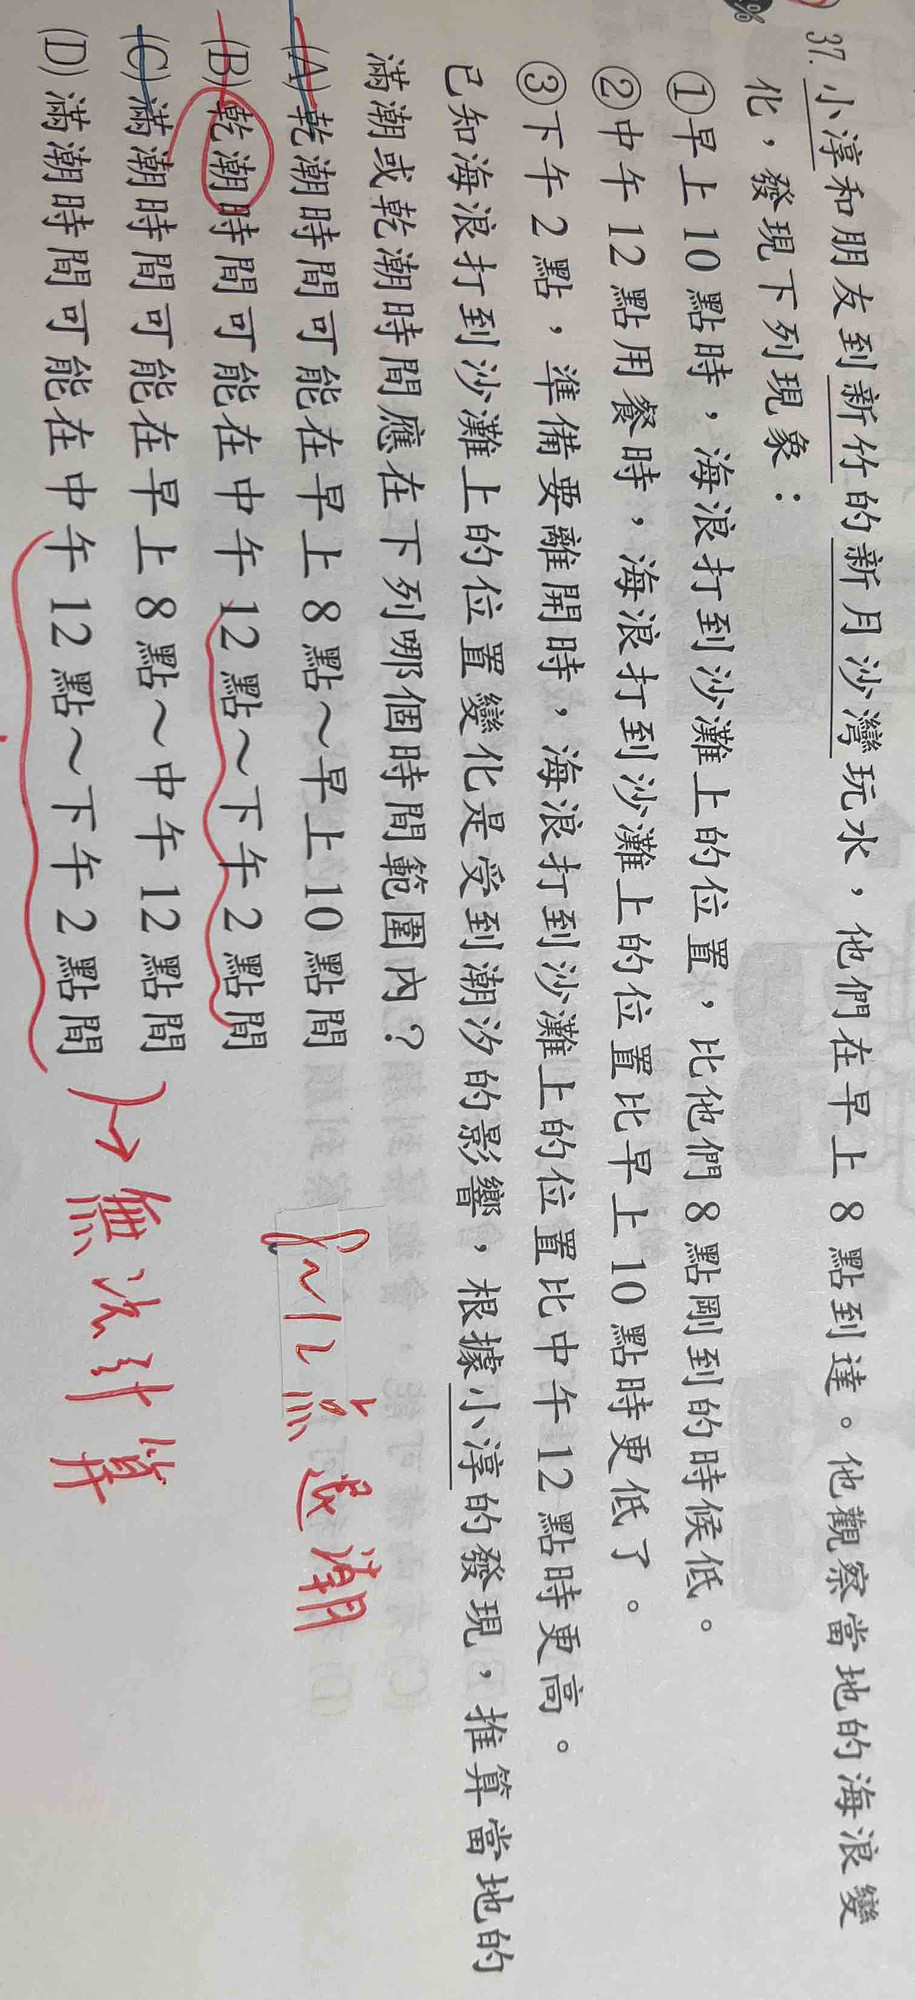 37. 小淳和朋友到新竹的新月沙灣玩水，他們在早上 8 點到達。他觀察當地的海浪變
化，發現下列現象：
①早上 10 點時，海浪打到沙灘上的位置，比他們 8 點剛到的時候低。
②中午 12 點用餐時，海浪打到沙灘上的位置比早上 10 點時更低了。
③下午 2 點，準備要離開時，海浪打到沙灘上的位置比中午 12 點時更高。
已知海浪打到沙灘上的位置變化是受到潮汐的影響，根據小淳的發現，推算當地的
滿潮或乾潮時間應在下列哪個時間範圍內？
(A) 乾潮時間可能在早上 8 點～早上 10 點間
(B) 乾潮時間可能在中午 12 點～下午 2 點間
(C) 滿潮時間可能在早上 8 點～中午 12 點間
(D) 滿潮時間可能在中午 12 點～下午 2 點間
8~12点退潮
→無法計算